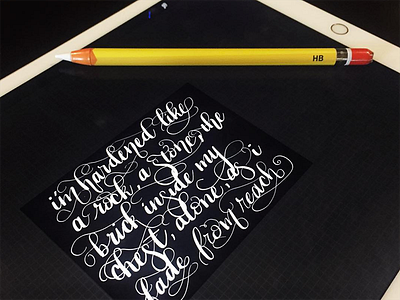 HB
i'm hardened like
a rock, a stone, the
brick inside my
chest, alone, as i
fade from reach